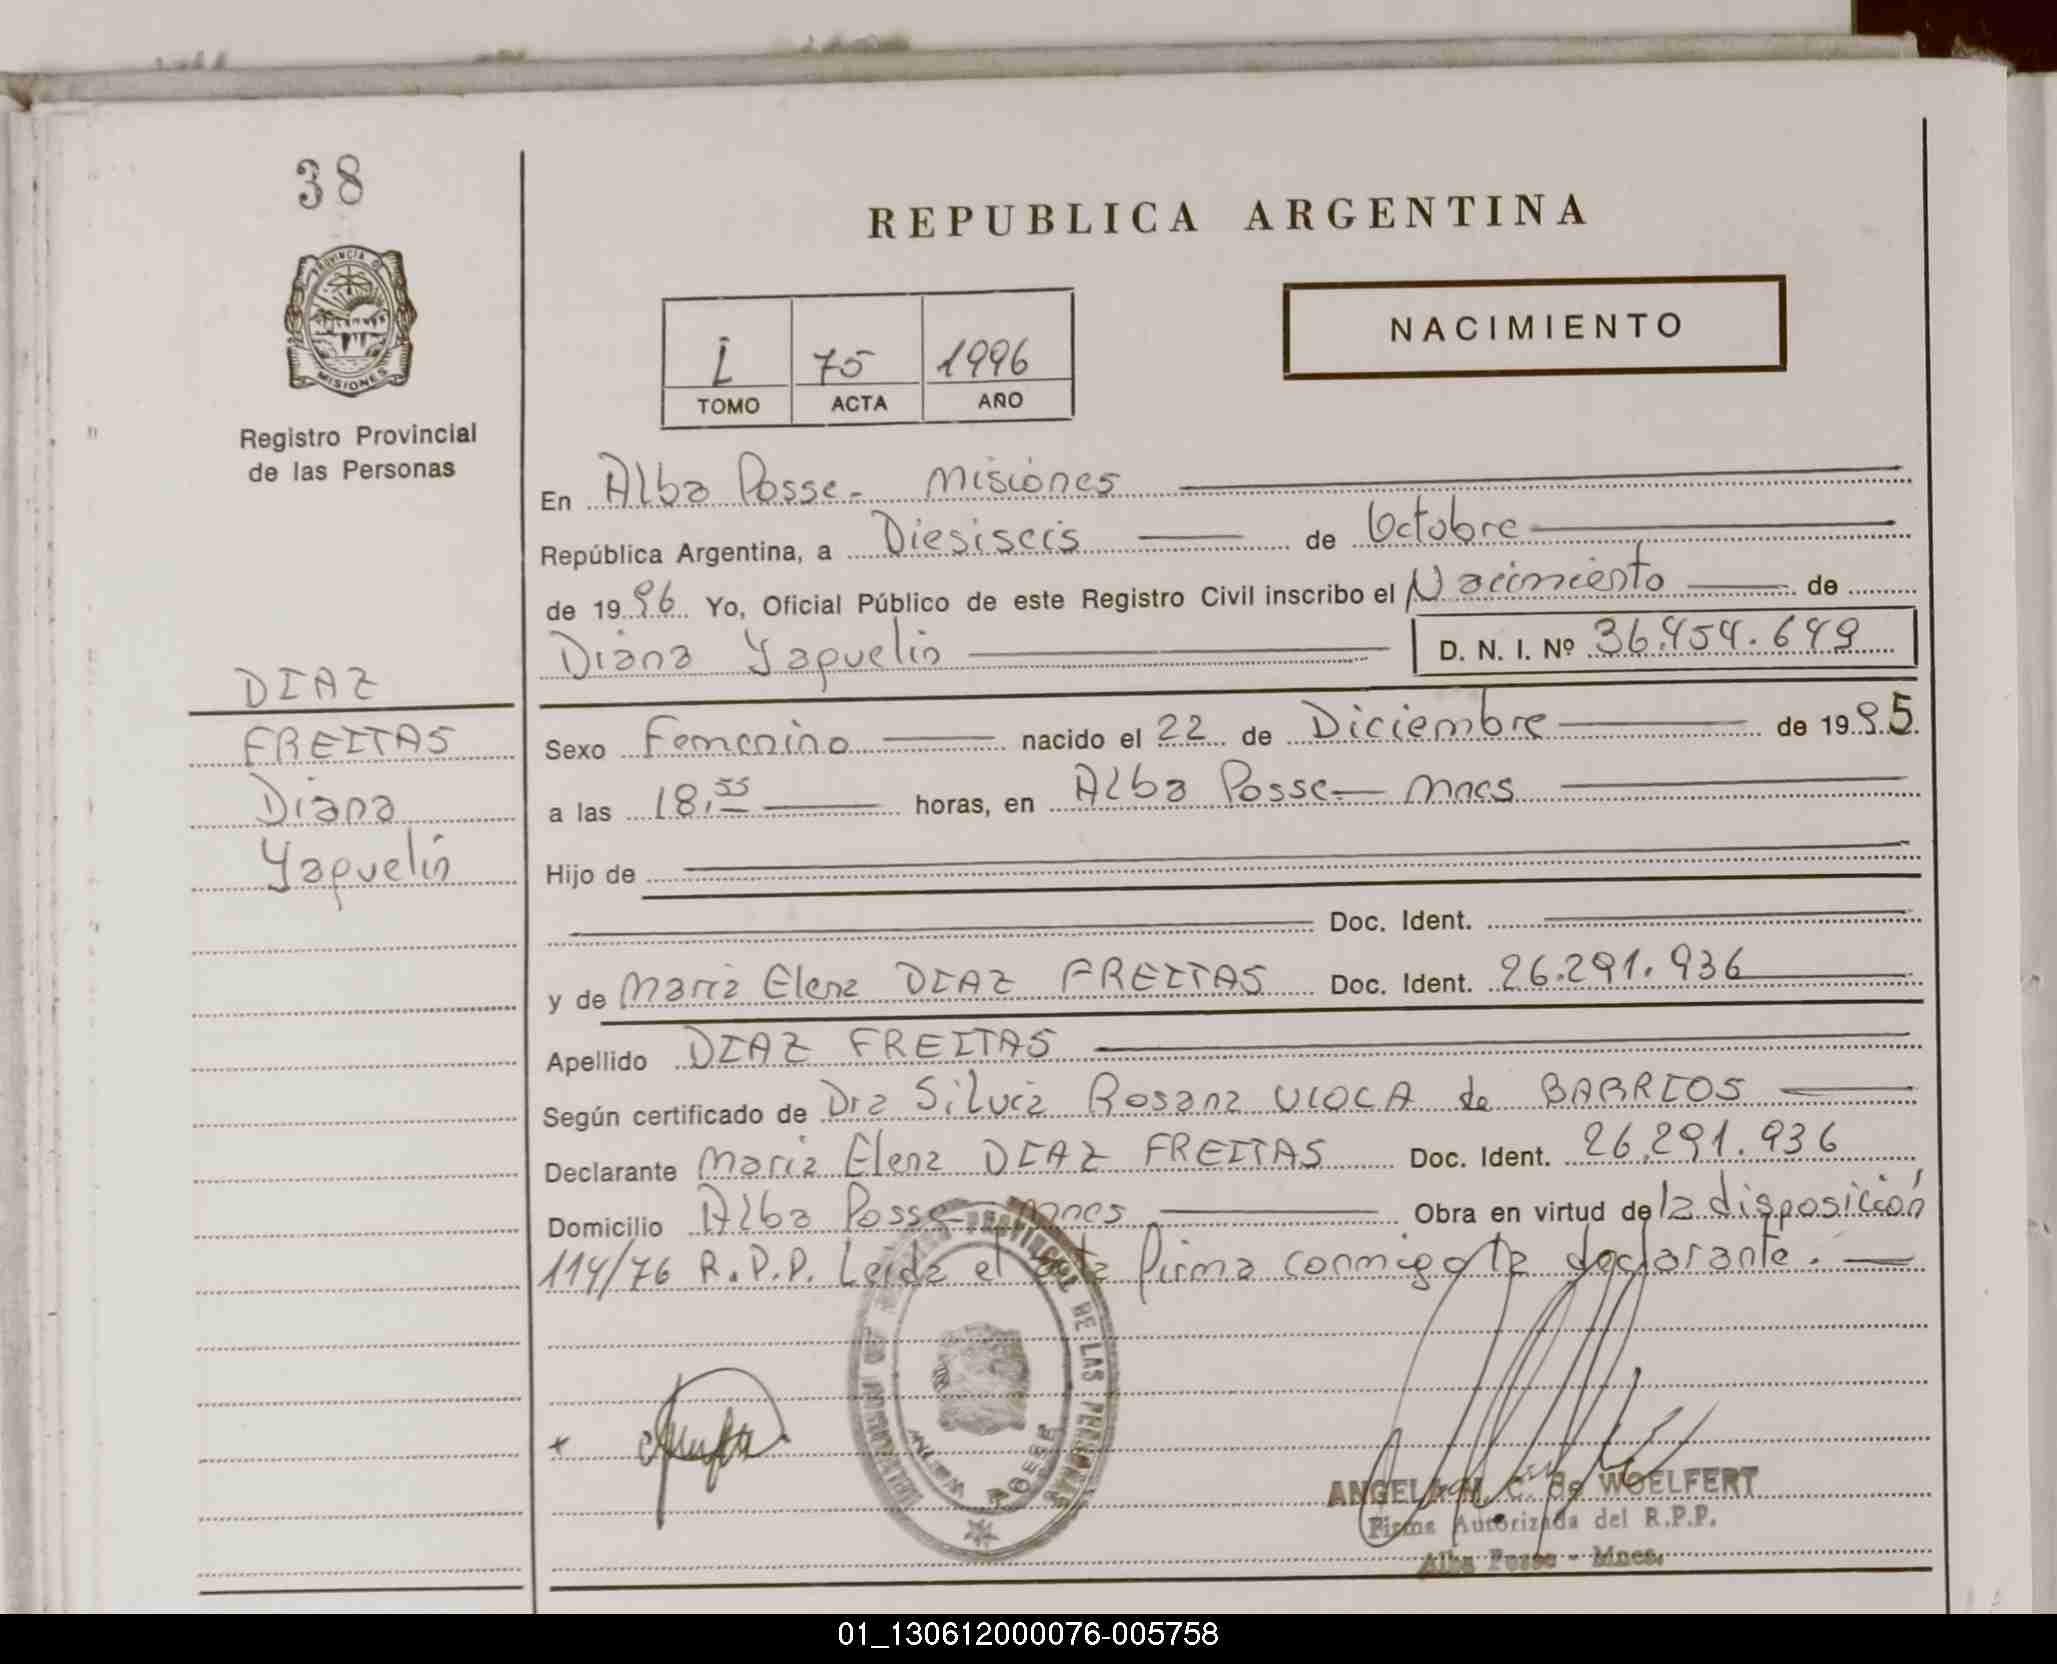 38
REPUBLICA ARGENTINA
PROVINCIA DE
MISIONES
Registro Provincial
de las Personas
I 75 1996
TOMO ACTA AÑO
NACIMIENTO
En Alba Posse - Misiones
República Argentina, a Diesiseis de Octobre
de 1996 Yo, Oficial Público de este Registro Civil inscribo el Nacimiento de
Diana Yaquelin D. N. I. Nº 36.454.649
DIAZ
FREITAS
Diana
Yaquelin
Sexo Femenino nacido el 22 de Diciembre de 1995
a las 18,55 horas, en Alba Posse - Mnes
Hijo de
Doc. Ident.
y de Maria Elena DIAZ FREITAS Doc. Ident. 26.291.936
Apellido DIAZ FREITAS
Según certificado de Dra Silvia Rosana de BARRIOS
Declarante Maria Elena DIAZ FREITAS Doc. Ident. 26.291.936
Domicilio Alba Posse - Mnes Obra en virtud de la disposición
114/76 R.P.P. Leida el acta firma conmigo la declarante.
PROVINCIAL DE LAS PERSONAS
POSSE
ANGELA M. C. de WOELFERT
Firma Autorizada del R.P.P.
Alba Posse - Mnes.
01_130612000076-005758